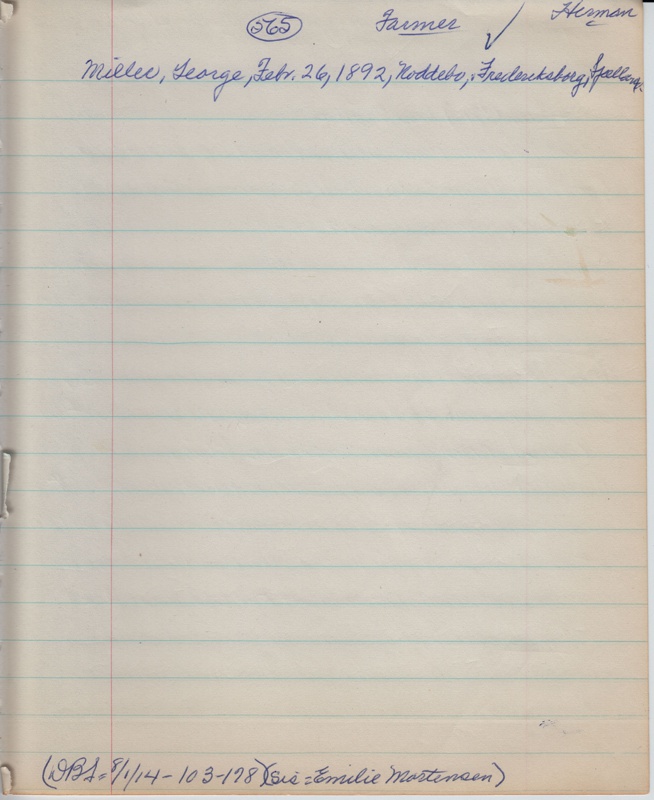 565 Farmer ✓ Herman
Miller, George, Febr. 26, 1892, Noddebo, Fredericksborg, Sjælland.
(DBS = 8/1/14 - 103-178) (Sis = Emilie Mortensen)